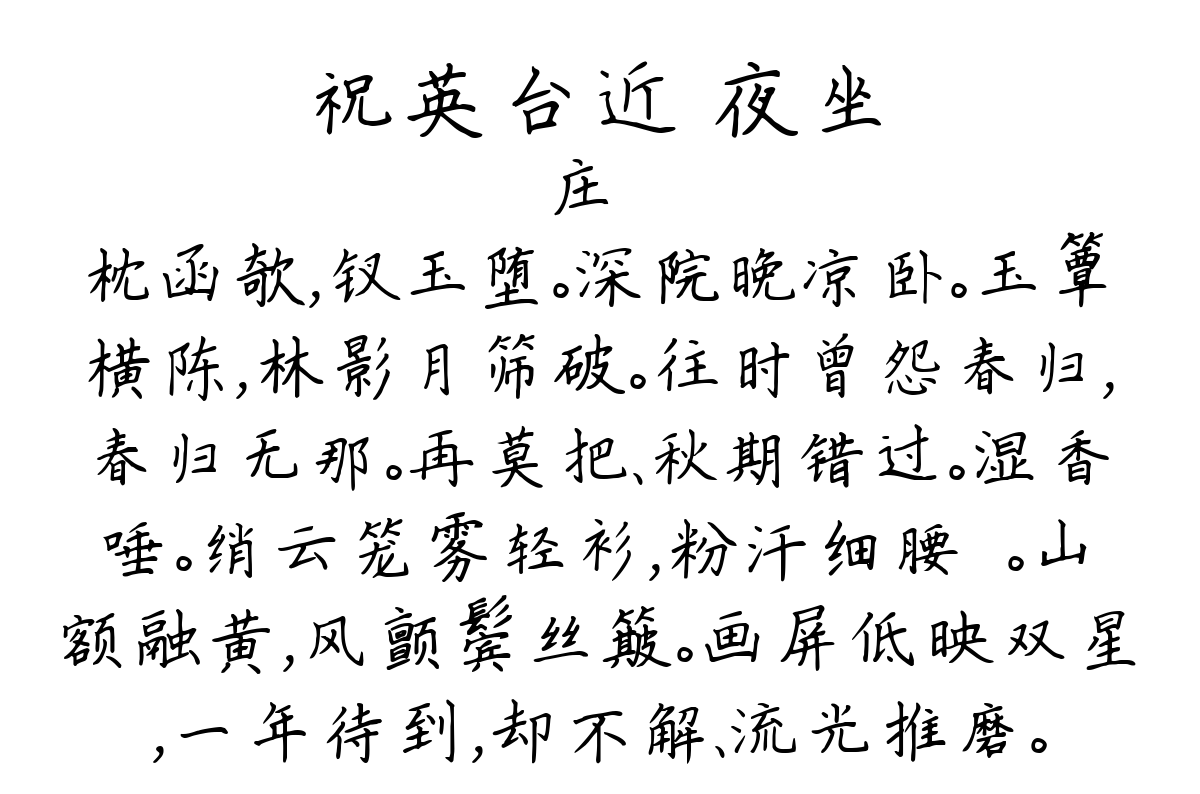 祝英台近 夜坐
庄
枕函欹,钗玉堕。深院晚凉卧。玉簟
横陈,林影月筛破。往时曾怨春归,
春归无那。再莫把、秋期错过。湿香
唾。绡云笼雾轻衫,粉汗细腰 。山
额融黄,风颤鬓丝簸。画屏低映双星
,一年待到,却不解、流光推磨。